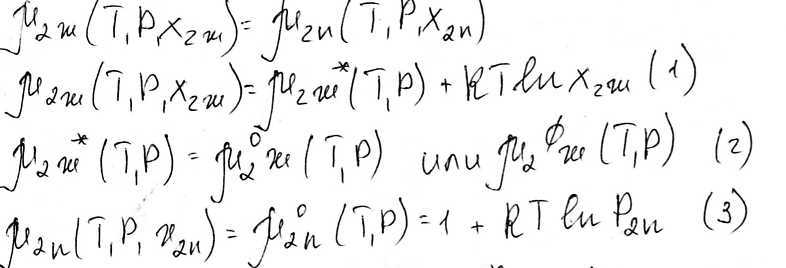 μ₂ж(T,P,x₂ж)= μ₂п(T,P,x₂п)
μ₂ж(T,P,x₂ж)= μ₂ж*(T,P) + RTlnx₂ж (1)
μ₂ж*(T,P) = μ₂⁰ж(T,P) или μ₂ᶲж(T,P) (2)
μ₂п(T,P,x₂п)= μ₂п⁰(T,P)=1 + RTlnP₂п (3)